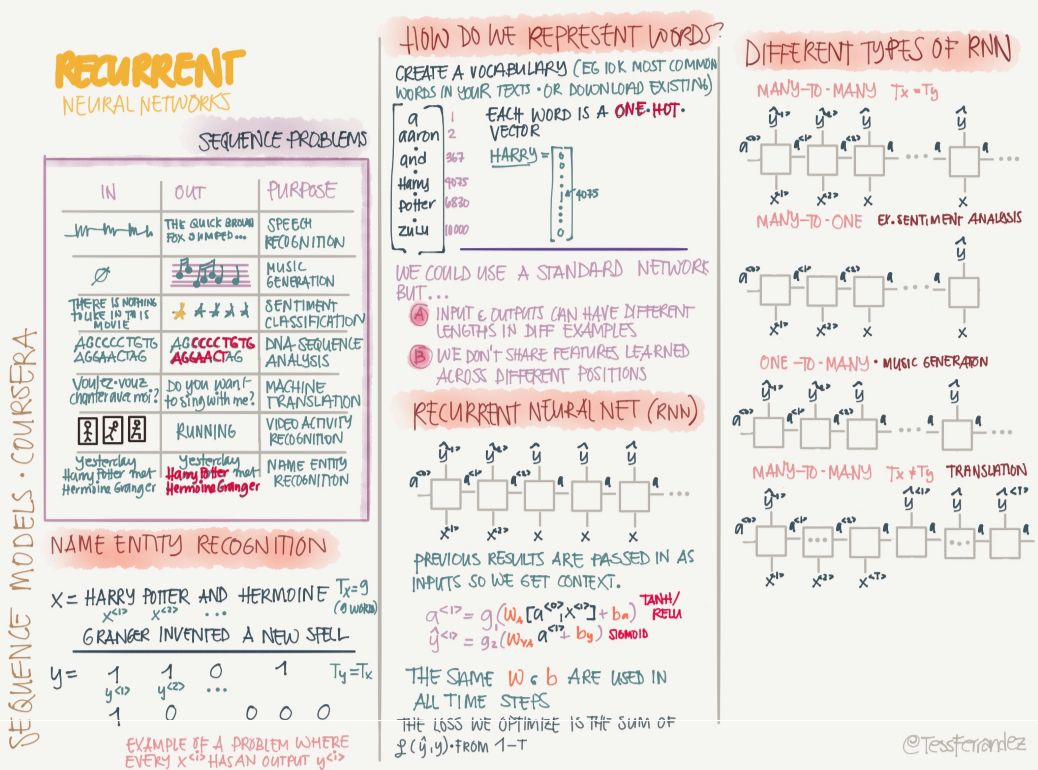 RECURRENT
NEURAL NETWORKS
SEQUENCE PROBLEMS
IN OUT PURPOSE
THE QUICK BROWN
FOX JUMPED...
SPEECH
RECOGNITION
∅
MUSIC
GENERATION
THERE IS NOTHING
TO LIKE IN THIS
MOVIE
SENTIMENT
CLASSIFICATION
AGCCCCTGTG
AGGAACTAG
AGCCCCTGTG
AGGAACTAG
DNA SEQUENCE
ANALYSIS
Voulez-vouz
chanter avec moi?
Do you want
to sing with me?
MACHINE
TRANSLATION
RUNNING
VIDEO ACTIVITY
RECOGNITION
Yesterday
Harry Potter met
Hermoine Granger
Yesterday
Harry Potter met
Hermoine Granger
NAME ENTITY
RECOGNITION
SEQUENCE MODELS · COURSERA
NAME ENTITY RECOGNITION
X = HARRY POTTER AND HERMOINE Tx=9
x<1> x<2> ... (9 WORDS)
GRANGER INVENTED A NEW SPELL
y = 1 1 0 1 Ty=Tx
y<1> y<2> ...
1 0 0 0 0
EXAMPLE OF A PROBLEM WHERE
EVERY X<i> HAS AN OUTPUT y<i>
HOW DO WE REPRESENT WORDS?
CREATE A VOCABULARY (EG 10K MOST COMMON
WORDS IN YOUR TEXTS · OR DOWNLOAD EXISTING)
a 1
aaron 2
and 367
Harry 4075
Potter 6830
zulu 10000
EACH WORD IS A ONE·HOT·
VECTOR
HARRY =
0
0
1
4075
0
WE COULD USE A STANDARD NETWORK
BUT...
A INPUT & OUTPUTS CAN HAVE DIFFERENT
LENGTHS IN DIFF EXAMPLES
B WE DON'T SHARE FEATURES LEARNED
ACROSS DIFFERENT POSITIONS
RECURRENT NEURAL NET (RNN)
ŷ<1> ŷ<2> ŷ ŷ ŷ
...
x<1> x<2> x x x
PREVIOUS RESULTS ARE PASSED IN AS
INPUTS SO WE GET CONTEXT.
a<1> = g1(WA[a<0>,x<1>] + ba) TANH/
RELU
ŷ<1> = g2(WYA a<1> + by) SIGMOID
THE SAME W & b ARE USED IN
ALL TIME STEPS
THE LOSS WE OPTIMIZE IS THE SUM OF
ℒ(ŷ,y) · FROM 1-T
DIFFERENT TYPES OF RNN
MANY-TO-MANY Tx = Ty
ŷ<1> ŷ<2> ŷ ŷ
a<0> a<1> a<2> a ... a ...
x<1> x<2> x x
MANY-TO-ONE EX. SENTIMENT ANALYSIS
ŷ
a<0> a<1> a<2> a ... a
x<1> x<2> x x
ONE-TO-MANY · MUSIC GENERATION
ŷ<1> ŷ<2> ŷ ŷ
a<0> a<1> a<2> a ... a ...
MANY-TO-MANY Tx ≠ Ty TRANSLATION
ŷ<1> ŷ ŷ<T>
a<0> a<1> ... a<2> a a ... a
x<1> x<2> x<T>
@TessFerrandez